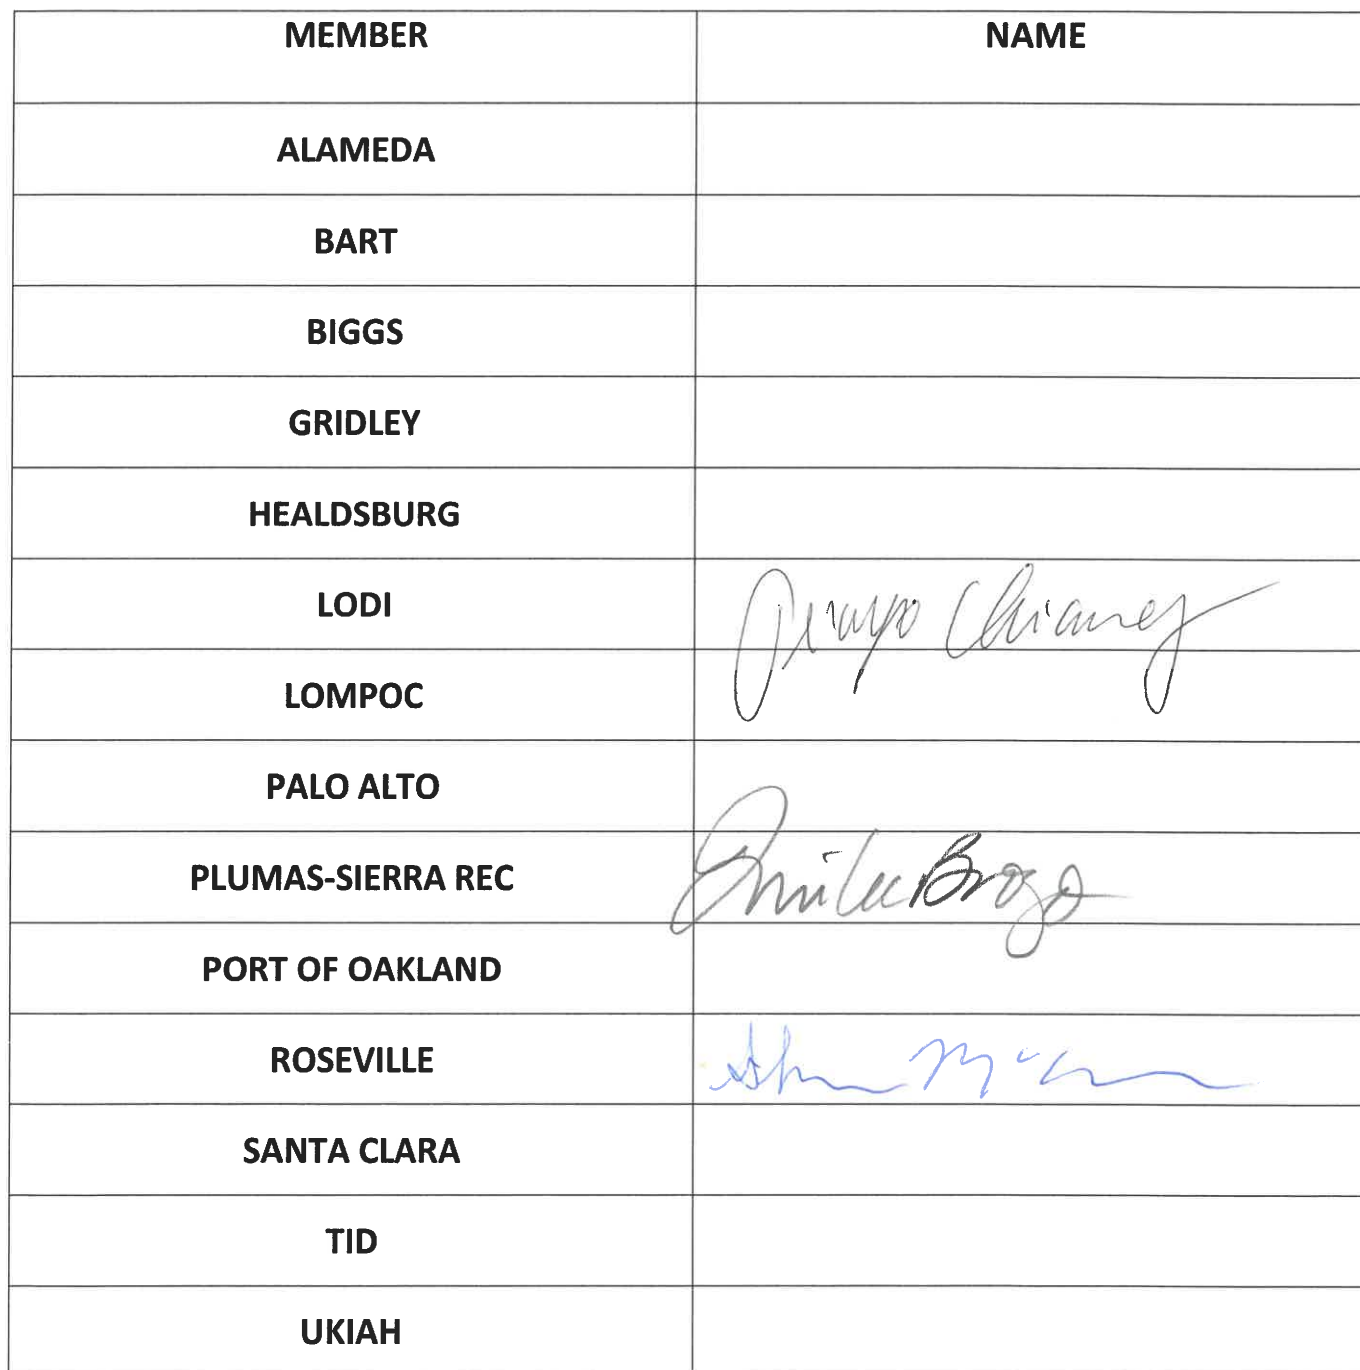 MEMBER NAME
ALAMEDA
BART
BIGGS
GRIDLEY
HEALDSBURG
LODI
LOMPOC
PALO ALTO
PLUMAS-SIERRA REC Brozo
PORT OF OAKLAND
ROSEVILLE
SANTA CLARA
TID
UKIAH